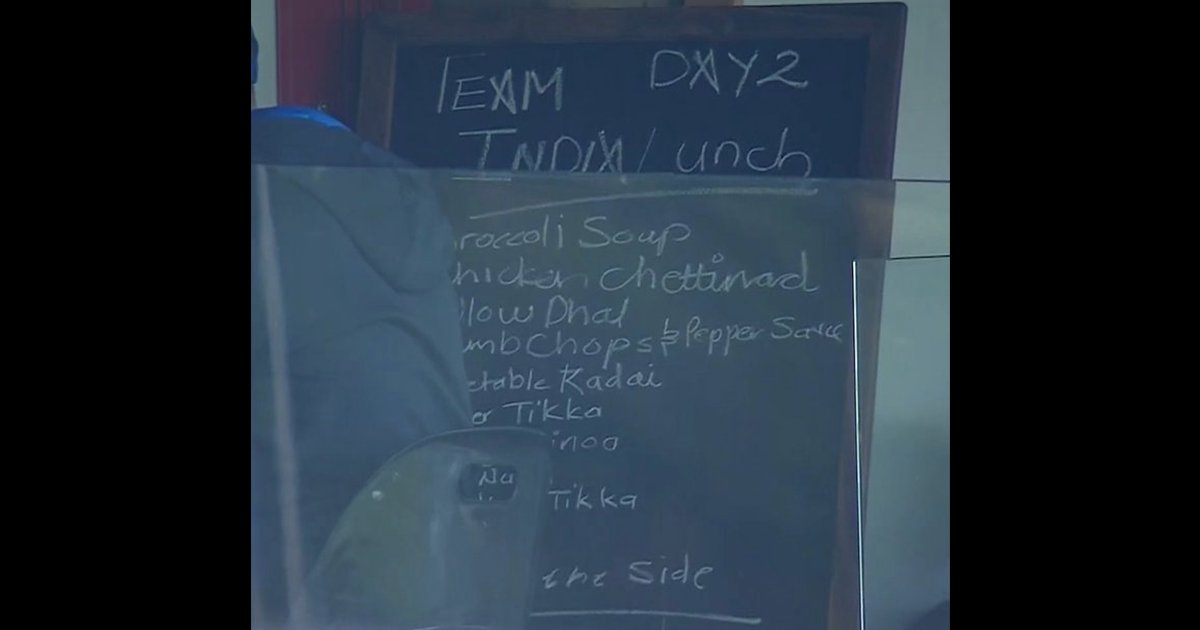 TEAM DAY 2
INDIA Lunch
roccoli Soup
hicken Chettinad
llow Dhal
mb Chops & Pepper Sauce
etable Kadai
er Tikka
inoa
Na
Tikka
the Side